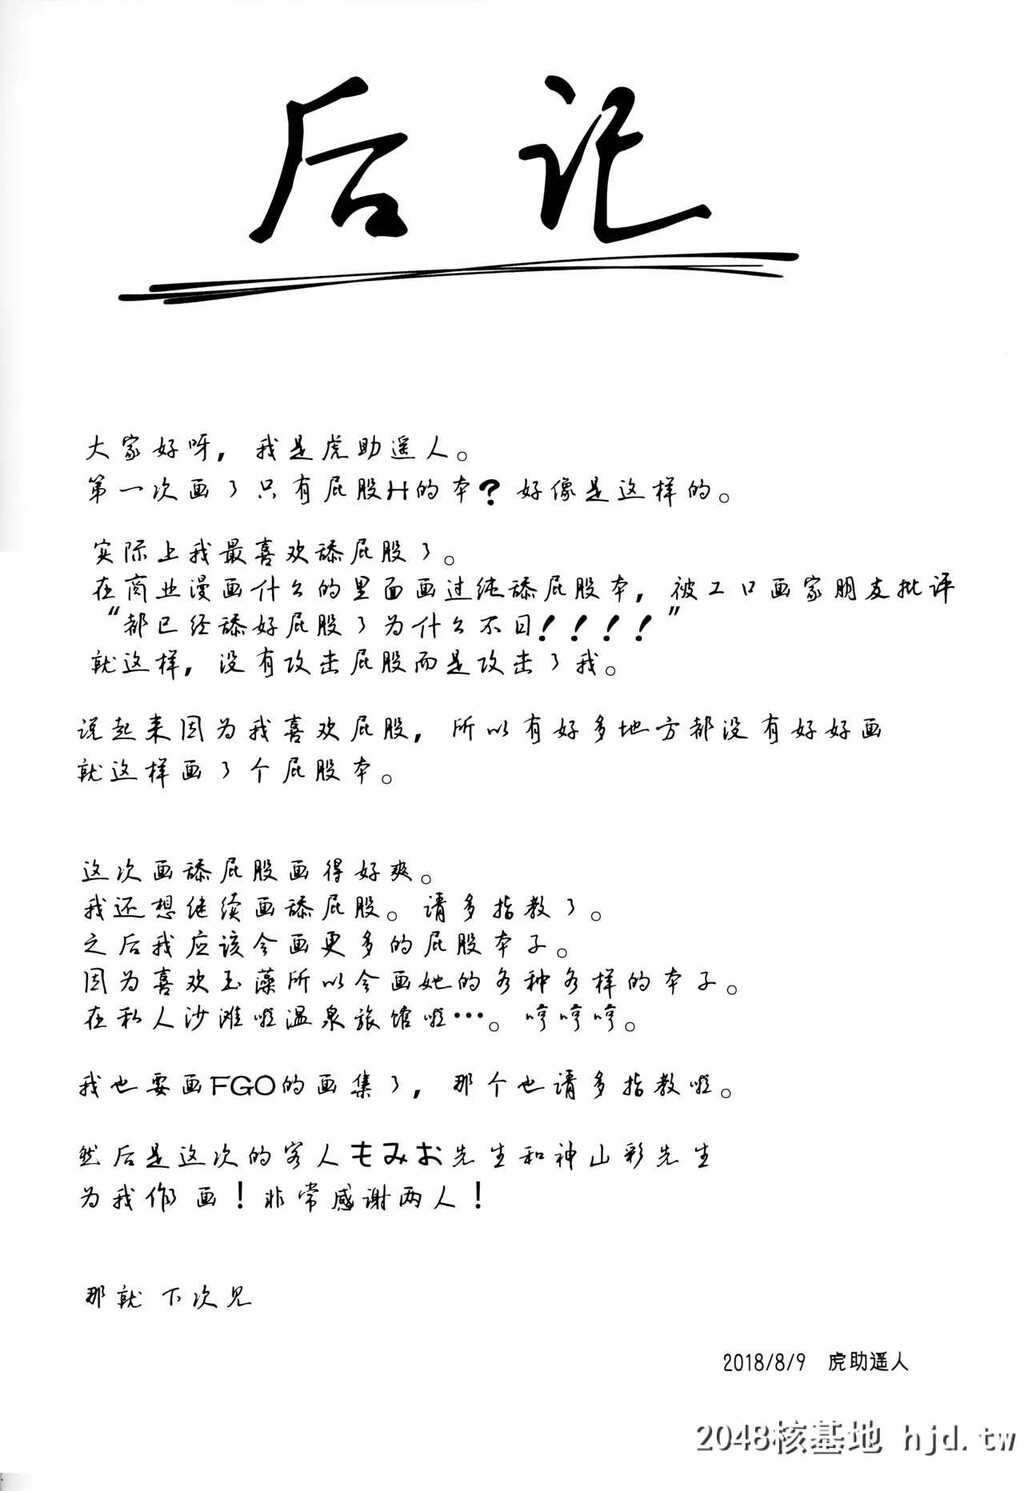 后记
大家好呀，我是虎助遥人。
第一次画了只有屁股H的本？好像是这样的。
实际上我最喜欢舔屁股了。
在商业漫画什么的里面画过纯舔屁股本，被工口画家朋友批评
“都已经舔好屁股了为什么不日！！！！”
就这样，没有攻击屁股而是攻击了我。
说起来因为我喜欢屁股，所以有好多地方都没有好好画
就这样画了个屁股本。
这次画舔屁股画得好爽。
我还想继续画舔屁股。请多指教了。
之后我应该会画更多的屁股本子。
因为喜欢玉藻所以会画她的各种各样的本子。
在私人沙滩啦温泉旅馆啦…。哼哼哼。
我也要画FGO的画集了，那个也请多指教啦。
然后是这次的客人もみお先生和神山彩先生
为我作画！非常感谢两人！
那就 下次见
2018/8/9 虎助遥人
2048核基地 hjd.tw